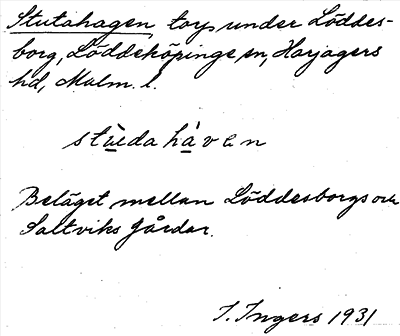 Stutahagen, torp under Löddes-
borg, Löddeköpinge sn, Harjagers
hd, Malm. l.
stùdahàven
Beläget mellan Löddesborgs och
Saltviks gårdar.
I. Ingers 1931